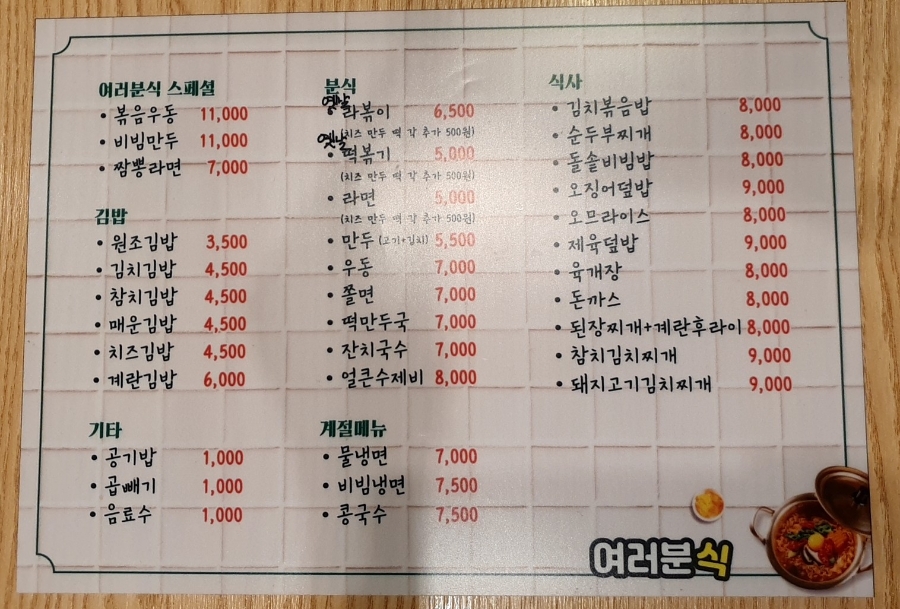 여러분식 스페셜
• 볶음우동 11,000
• 비빔만두 11,000
• 짬뽕라면 7,000
김밥
• 원조김밥 3,500
• 김치김밥 4,500
• 참치김밥 4,500
• 매운김밥 4,500
• 치즈김밥 4,500
• 계란김밥 6,000
기타
• 공기밥 1,000
• 곱빼기 1,000
• 음료수 1,000
분식
옛날
• 라볶이 6,500
(치즈 만두 떡 각 추가 500원)
옛날
• 떡볶기 5,000
(치즈 만두 떡 각 추가 500원)
• 라면 5,000
(치즈 만두 떡 각 추가 500원)
• 만두 (고기+김치) 5,500
• 우동 7,000
• 쫄면 7,000
• 떡만두국 7,000
• 잔치국수 7,000
• 얼큰수제비 8,000
계절메뉴
• 물냉면 7,000
• 비빔냉면 7,500
• 콩국수 7,500
식사
• 김치볶음밥 8,000
• 순두부찌개 8,000
• 돌솥비빔밥 8,000
• 오징어덮밥 9,000
• 오므라이스 8,000
• 제육덮밥 9,000
• 육개장 8,000
• 돈까스 8,000
• 된장찌개+계란후라이 8,000
• 참치김치찌개 9,000
• 돼지고기김치찌개 9,000
여러분식